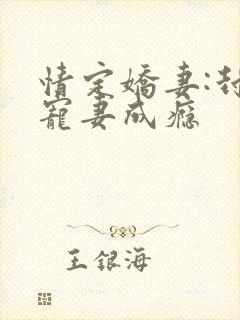 情定嬌妻:封
寵妻成癮
王銀海